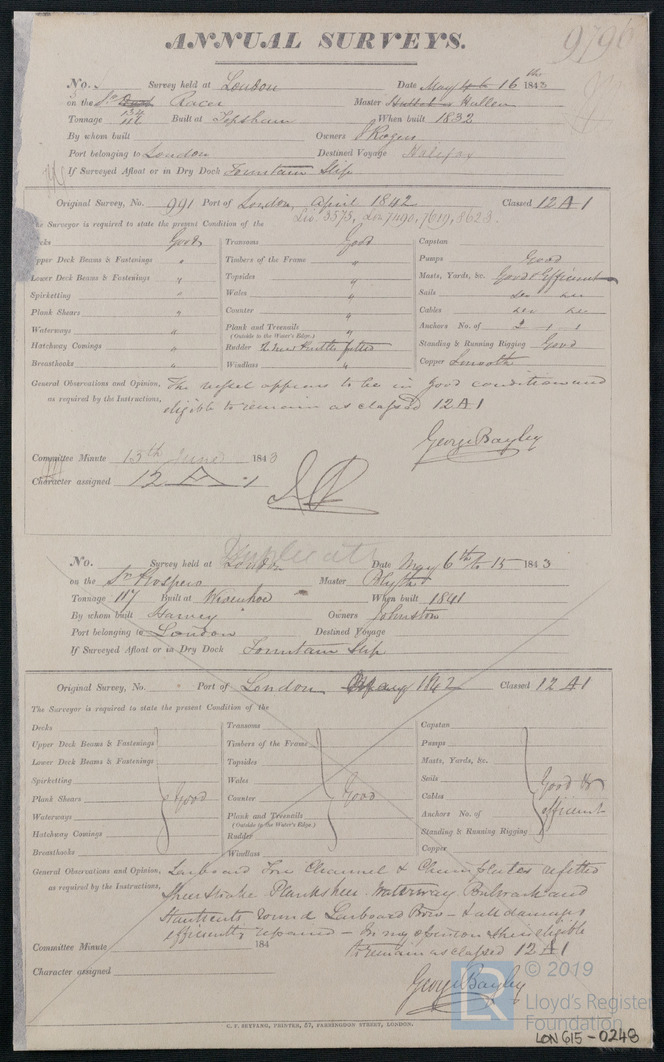 9796
ANNUAL SURVEYS.
No. Survey held at London Date May 16th 1843
on the Sr Racer Master Hullen
Tonnage 134 116 Built at Topsham When built 1832
By whom built Owners Rogers
Port belonging to London Destined Voyage Halifax
If Surveyed Afloat or in Dry Dock Fountain Slip
Original Survey, No. 991 Port of London, April 1842 Classed 12 A 1
Lio. 3575, Lon 7490, 7619, 8623.
The Surveyor is required to state the present Condition of the
Decks Good Transoms Good Capstan
Upper Deck Beams & Fastenings " Timbers of the Frame " Pumps Good
Lower Deck Beams & Fastenings " Topsides " Masts, Yards, &c. Good & Efficient
Spirketting " Wales " Sails do do
Plank Shears " Counter " Cables do do
Waterways " Plank and Treenails " Anchors No. of 2 1 1
(Outside to the Water's Edge.)
Hatchway Comings " Rudder fitted Standing & Running Rigging Good
Breasthooks " Windlass " Copper Smooth
General Observations and Opinion, The vessel appears to be in good condition and
as required by the Instructions, eligible to remain as classed 12 A 1
George Bayley
Committee Minute 13th June 1843
Character assigned 12 A 1
Duplicate
No. Survey held at London Date May 6th to 15 1843
on the Sr Prospero Master Blyth
Tonnage 117 Built at Wivenhoe When built 1841
By whom built Harvey Owners Johnston
Port belonging to London Destined Voyage
If Surveyed Afloat or in Dry Dock Fountain Slip
Original Survey, No. Port of London 1842 Classed 12 A 1
The Surveyor is required to state the present Condition of the
Decks Transoms Capstan
Upper Deck Beams & Fastenings Timbers of the Frame Pumps
Lower Deck Beams & Fastenings Topsides Masts, Yards, &c.
Spirketting Wales Sails Good &
Plank Shears Good Counter Good Cables
Waterways Plank and Treenails Anchors No. of efficient
(Outside to the Water's Edge.)
Hatchway Comings Rudder Standing & Running Rigging
Breasthooks Windlass Copper
General Observations and Opinion, Larboard Fore Channel & Chain plates refitted
as required by the Instructions, Sheerstrake Plankshear Waterway Bulwark and
Stanchions round Larboard Bow - & all damages
efficiently repaired - In my opinion she is eligible
Committee Minute 184 to remain as classed 12 A 1
Character assigned
George Bayley
C. F. SEYFANG, PRINTER, 57, FARRINGDON STREET, LONDON.
© 2019
Lloyd's Register
Foundation
LON 615-0248